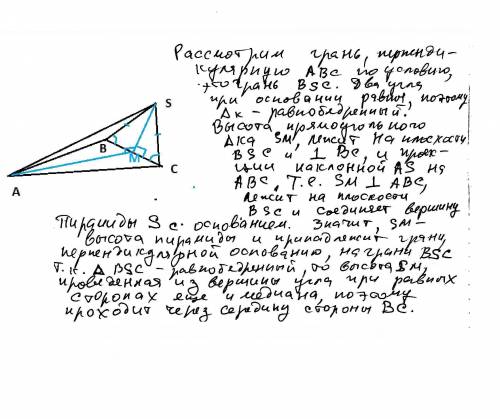 Рассмотрим грань, перпенди-
кулярную ABC по условию,
это грань BSC. Два угла
при основании равны, поэтому
Δк - равнобедренный.
Высота прямоугольного
Δка SM, лежит на плоскости
BSC и ⊥ BC, и проек-
ции наклонной AS на
ABC, т.е. SM ⊥ ABC,
лежит на плоскости
BSC и соединяет вершину
Пирамиды S с основанием. Значит, SM-
высота пирамиды и принадлежит грани,
перпендикулярной основанию, на грани BSC
Т.к. Δ BSC - равнобедренный, то высота SM,
проведенная из вершины угла при равных
сторонах еще и медиана, поэтому
проходит через середину стороны BC.
S
B
M
C
A